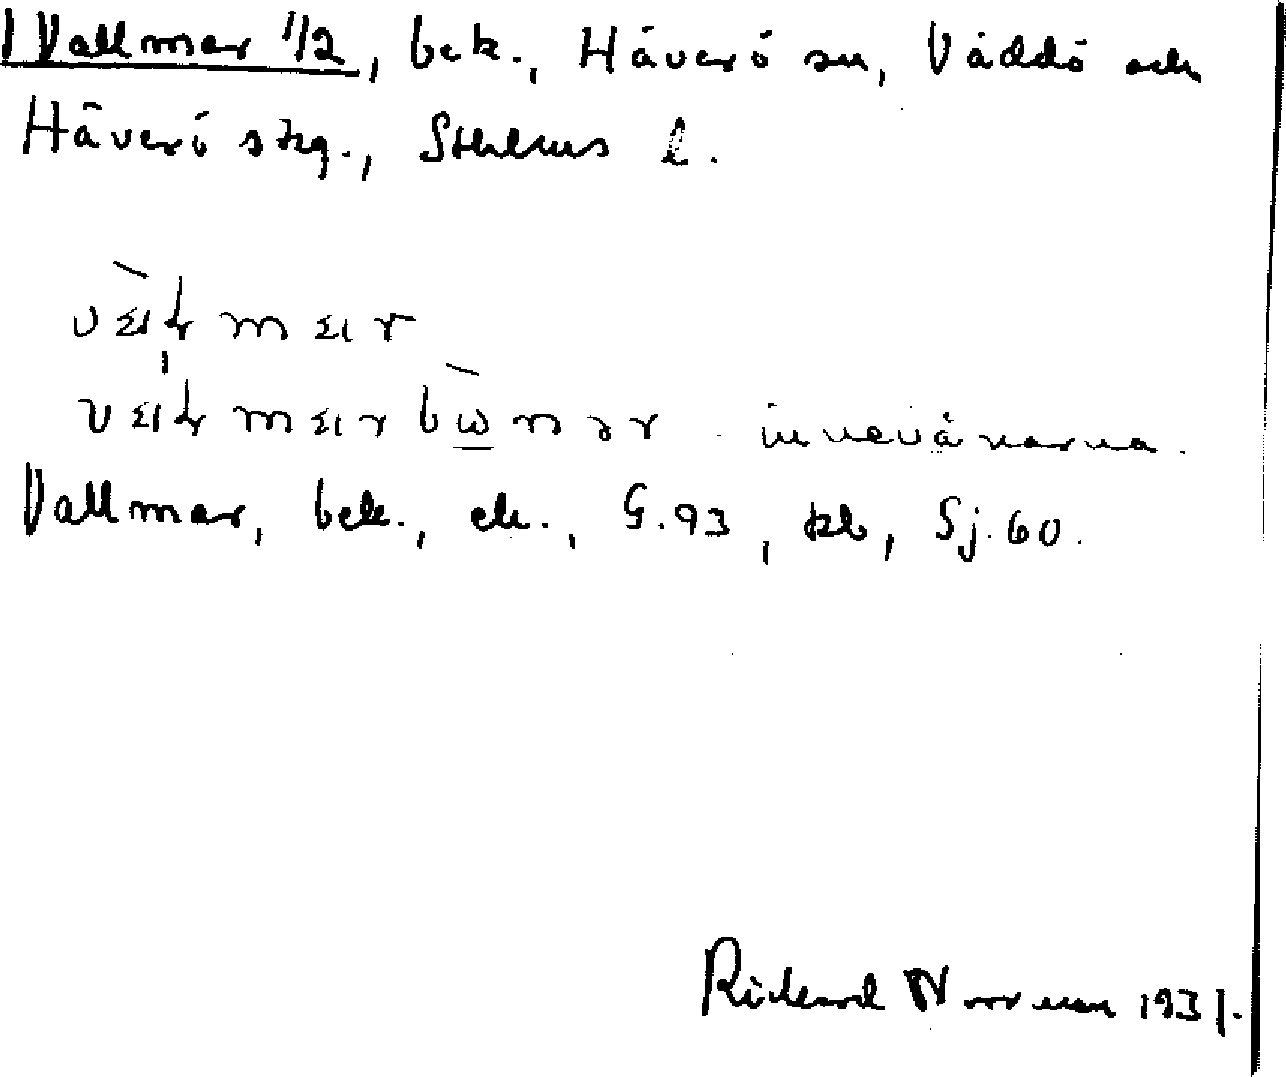 Vallmar 1/2, bek., Häverö sn, Väddö och
Häverö skg., Sthlms l.
innevånarna.
Vallmar, bek., ek., G.93, kb, Sj.60.
Rickard Norrman 1931.